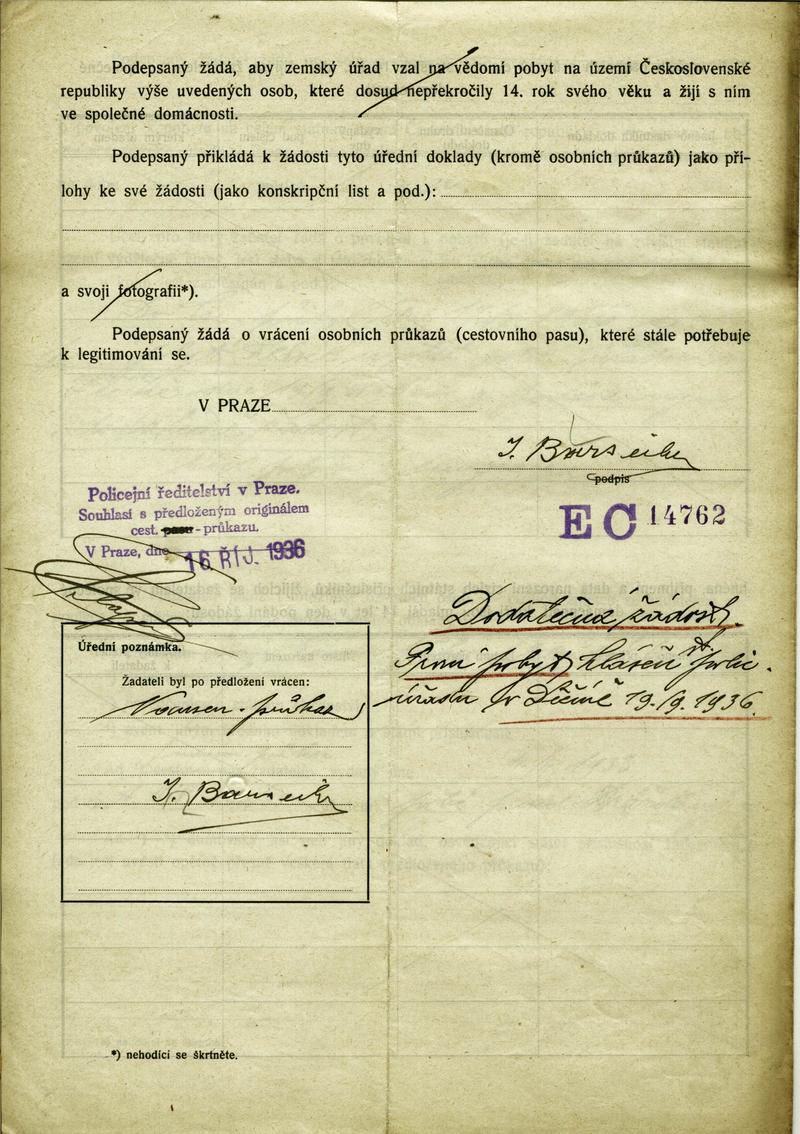 Podepsaný žádá, aby zemský úřad vzal na vědomí pobyt na území Československé
republiky výše uvedených osob, které dosud nepřekročily 14. rok svého věku a žijí s ním
ve společné domácnosti.
Podepsaný přikládá k žádosti tyto úřední doklady (kromě osobních průkazů) jako pří-
lohy ke své žádosti (jako konskripční list a pod.):
a svoji fotografii*).
Podepsaný žádá o vrácení osobních průkazů (cestovního pasu), které stále potřebuje
k legitimování se.
V PRAZE
podpis
EC 14762
Policejní ředitelství v Praze.
Souhlasí s předloženým originálem
cest. pasu - průkazu.
V Praze, dne 16. ŘÍJ. 1936
Dodatečná žádost.
První pobyt hlášen u polic.
v Děčíně 19./9. 1936.
Úřední poznámka.
Žadateli byl po předložení vrácen:
Nansen. průkaz
*) nehodící se škrtněte.